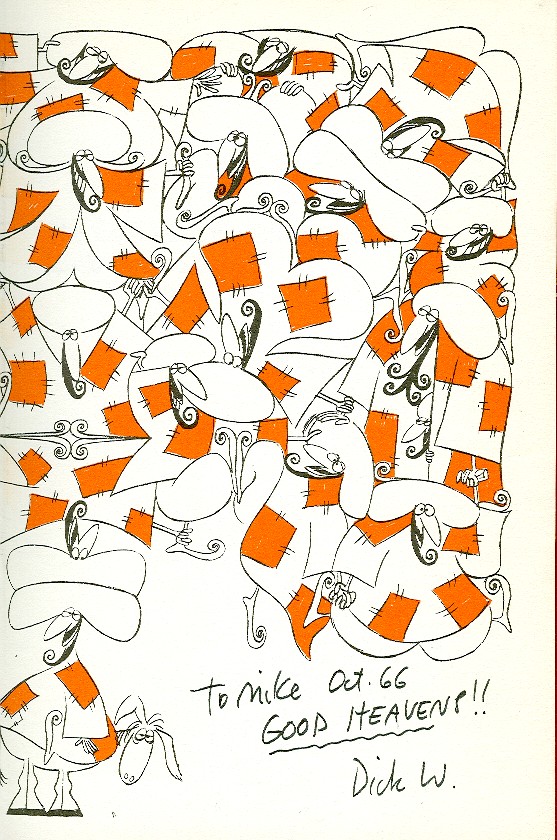 To Mike Oct. 66
GOOD HEAVENS!!
Dick W.